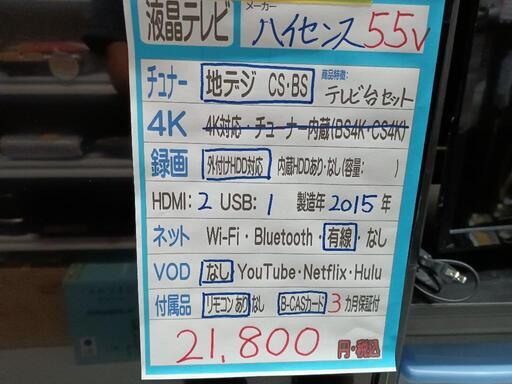 液晶テレビ メーカー ハイセンス 55v
チューナー 地デジ CS・BS 商品特徴: テレビ台セット
4K 4K対応・チューナー内蔵(BS4K・CS4K)
録画 外付けHDD対応 内蔵HDDあり・なし(容量: )
HDMI: 2 USB: 1 製造年 2015年
ネット Wi-Fi・Bluetooth・有線・なし
VOD なし・YouTube・Netflix・Hulu
付属品 リモコンあり・なし B-CASカード 3カ月保証付
21,800 円・税込